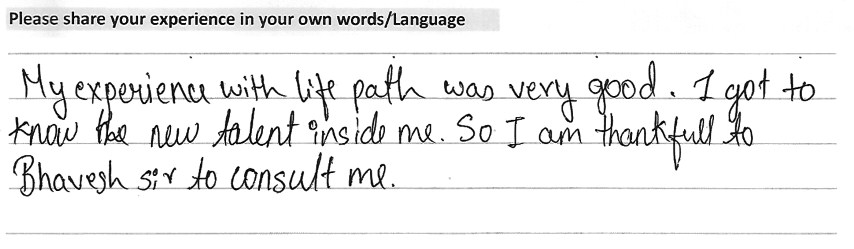 Please share your experience in your own words/Language
My experience with life path was very good. I got to
know the new talent inside me. So I am thankfull to
Bhavesh sir to consult me.